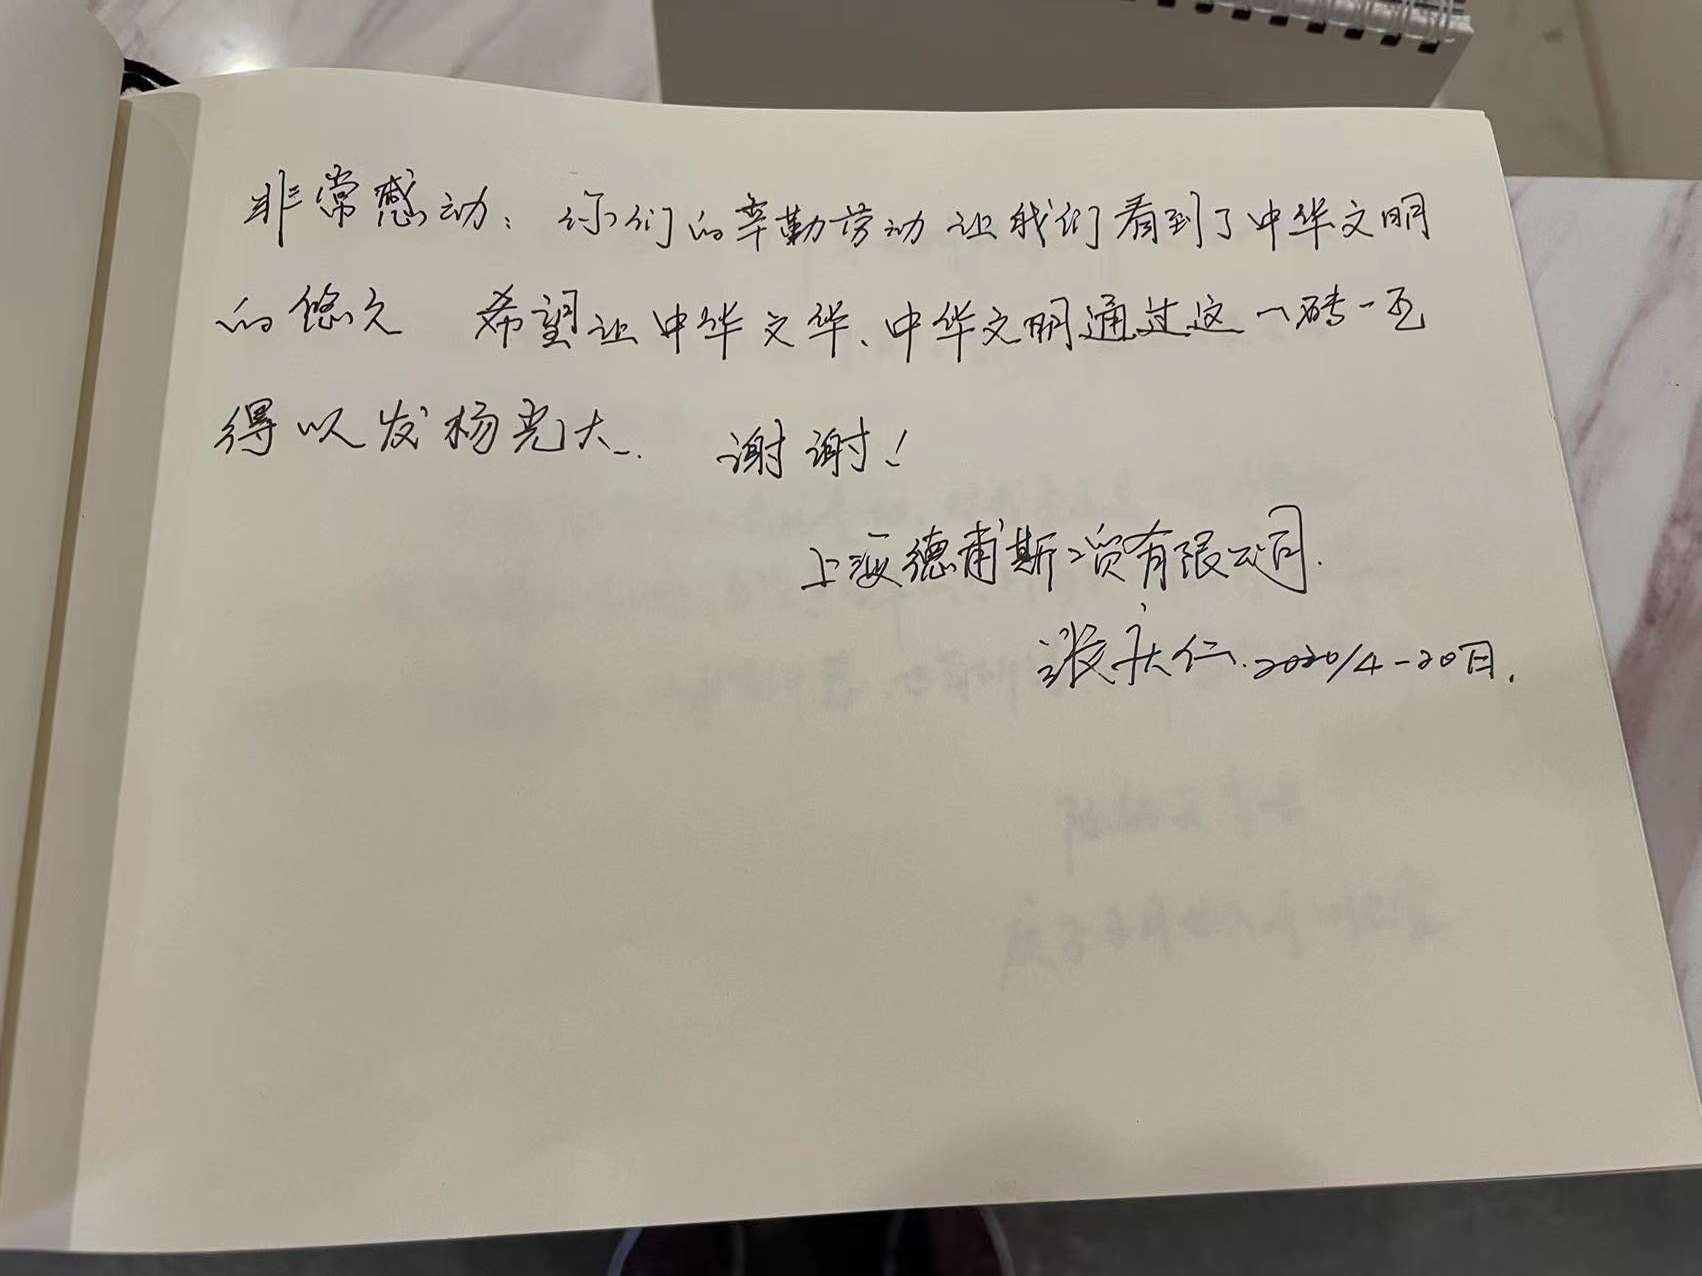 非常感动：你们的辛勤劳动让我们看到了中华文明
的悠久 希望让中华文华、中华文明通过这一砖一瓦
得以发杨光大. 谢谢！
上海德甫斯工贸有限公司.
张庆仁.2020/4-20日.